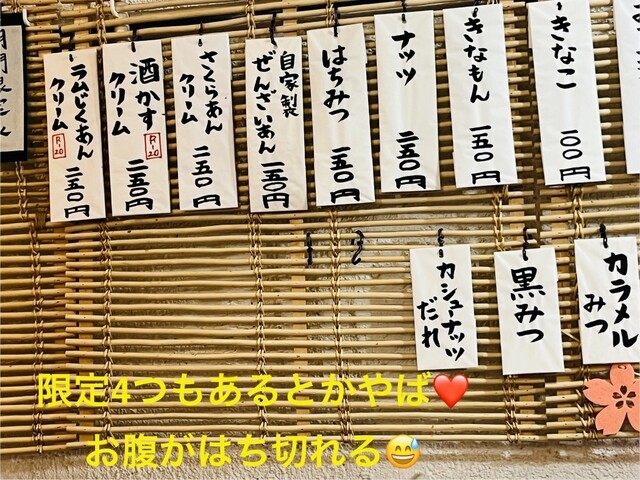 きなこ
一〇〇円
きなもん
一五〇円
ナッツ
一五〇円
はちみつ
一五〇円
自家製
ぜんざいあん
一五〇円
さくらあん
クリーム
二五〇円
酒かす
クリーム
R-20
二五〇円
ラムじくあん
クリーム
R-20
二五〇円
カラメル
みつ
黒みつ
カシューナッツ
だれ
限定4つもあるとかやば❤️
お腹がはち切れる😅